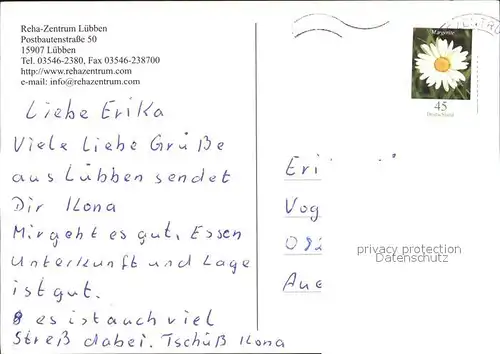 Reha-Zentrum Lübben
Postbautenstraße 50
15907 Lübben
Tel. 03546-2380, Fax 03546-238700
http://www.rehazentrum.com
e-mail: info@rehazentrum.com
Liebe Erika
Viele liebe Grüße
aus Lübben sendet
Dir Ilona
Mir geht es gut. Essen
Unterkunft und Lage
ist gut.
es ist auch viel
Streß dabei. Tschüß Ilona
Margerite
45
Deutschland
Eri
Vog
082
Aue
privacy protection
Datenschutz